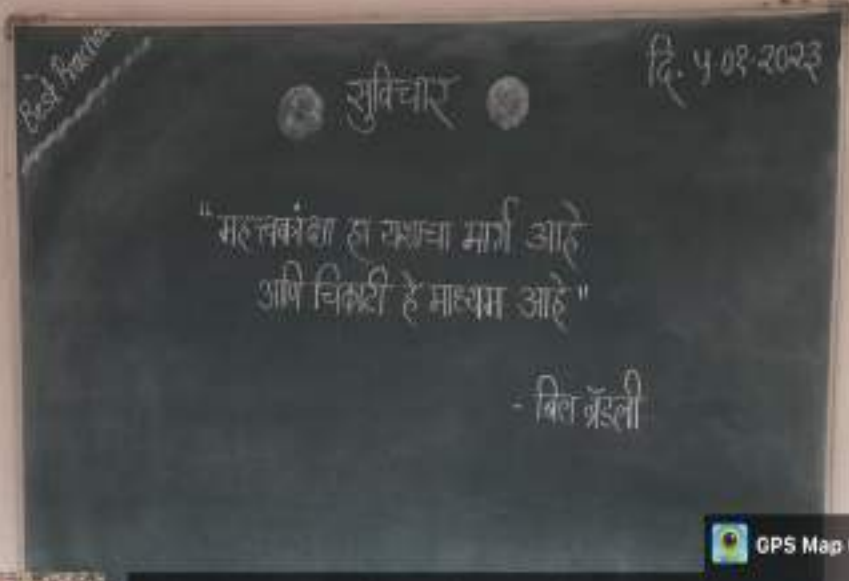 Best Practice
दि. ५.०१.२०२३
सुविचार
"महत्त्वकांक्षा हा यशाचा मार्ग आहे
आणि चिकाटी हे माध्यम आहे"
- बिल ब्रॅडली
GPS Map